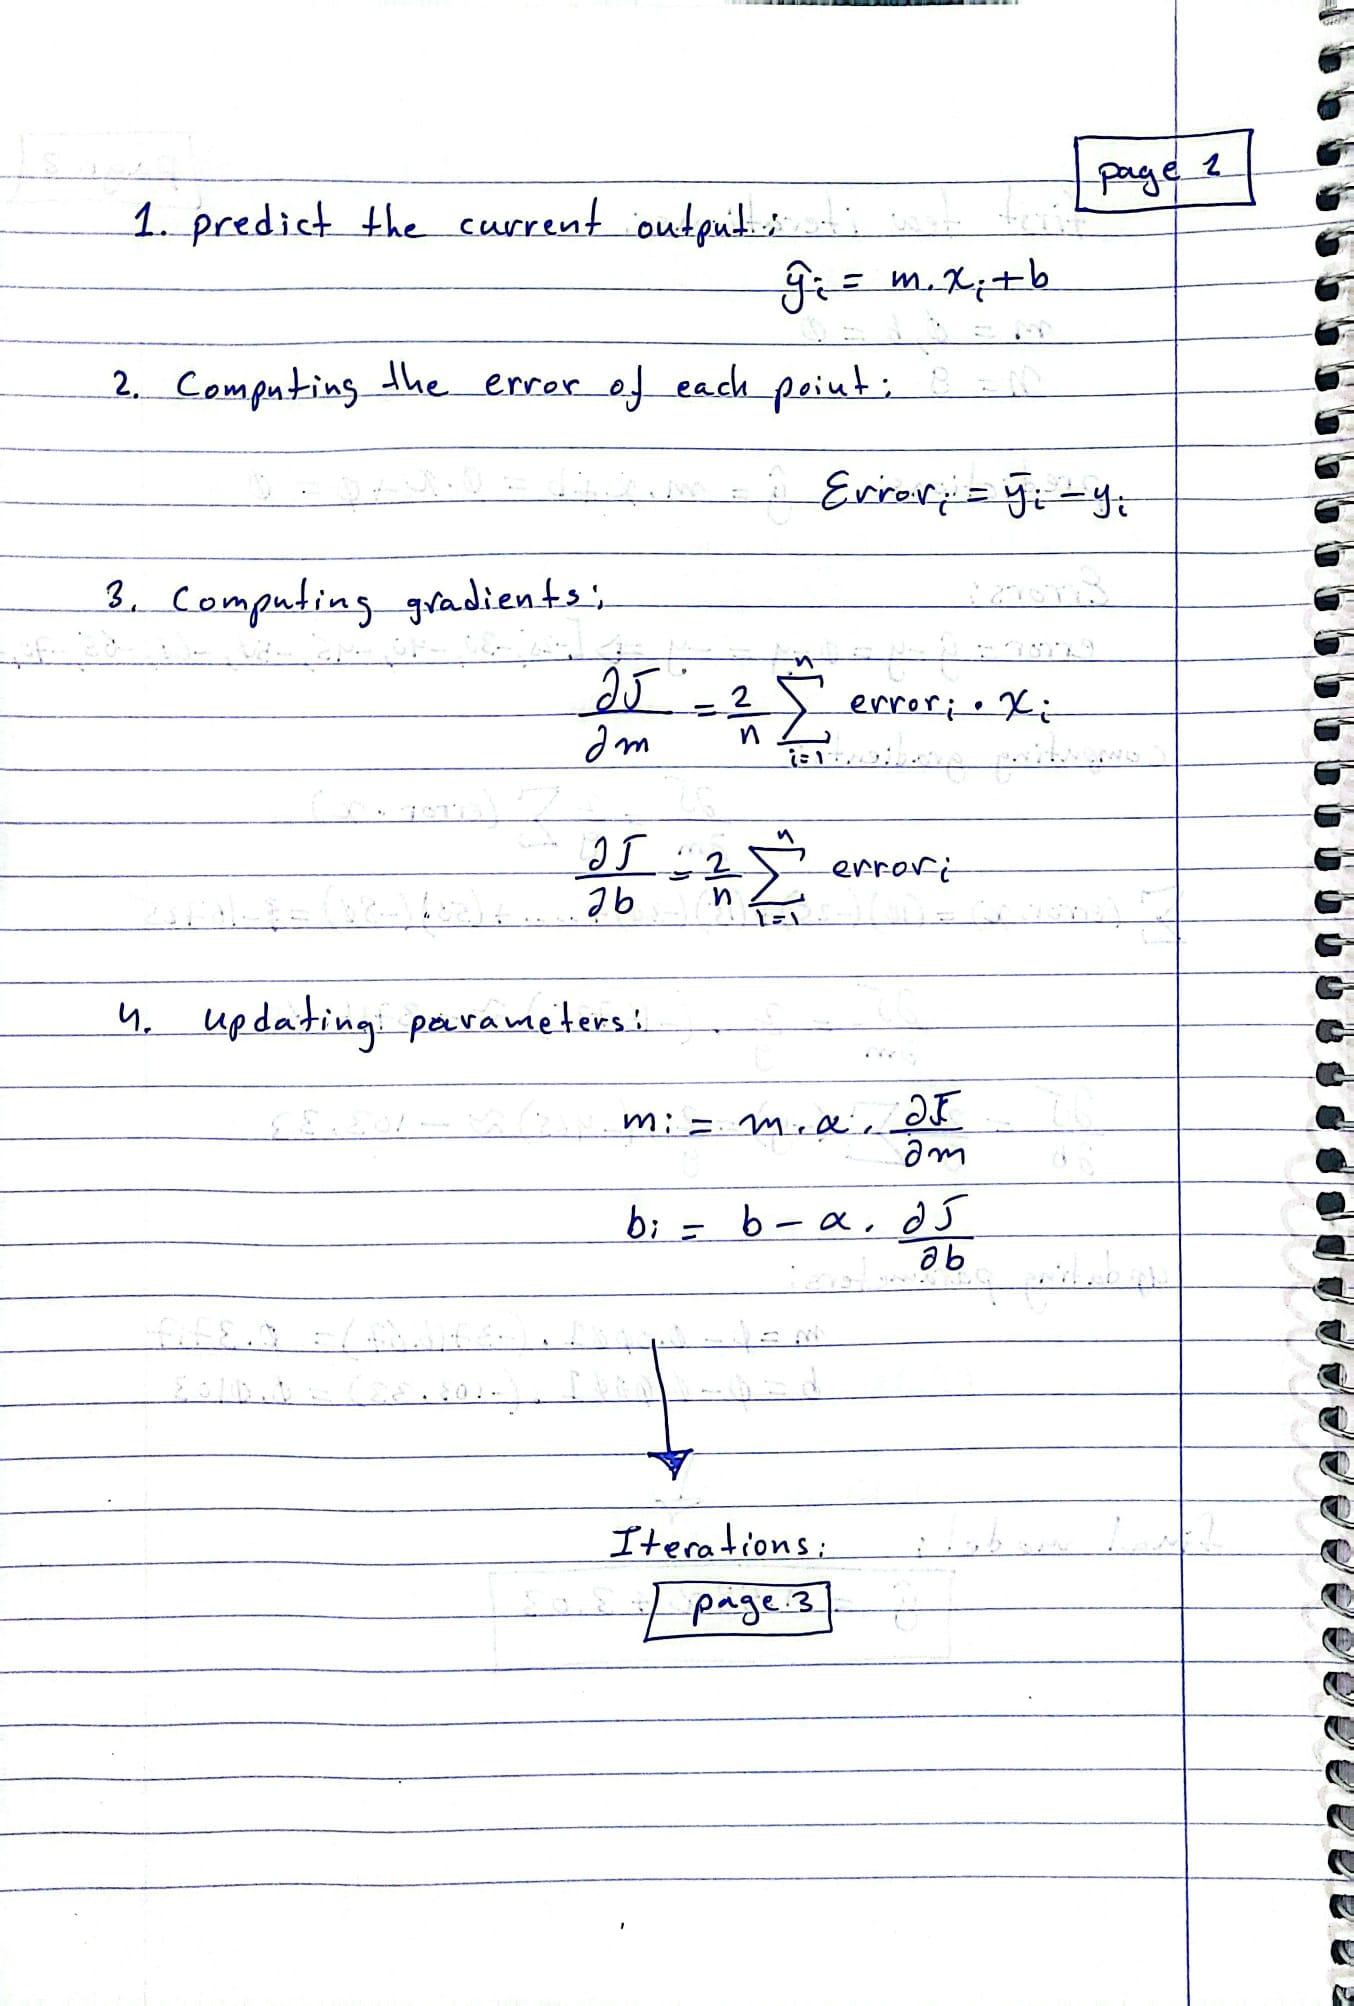 page 2
1. predict the current output:
ŷᵢ = m.xᵢ+b
2. Computing the error of each point:
Errorᵢ = ȳᵢ − yᵢ
3. Computing gradients:
∂J/∂m = 2/n ∑ⁿᵢ₌₁ errorᵢ . xᵢ
∂J/∂b = 2/n ∑ⁿᵢ₌₁ errorᵢ
4. updating parameters:
m := m . α . ∂J/∂m
b := b − α . ∂J/∂b
Iterations:
page 3